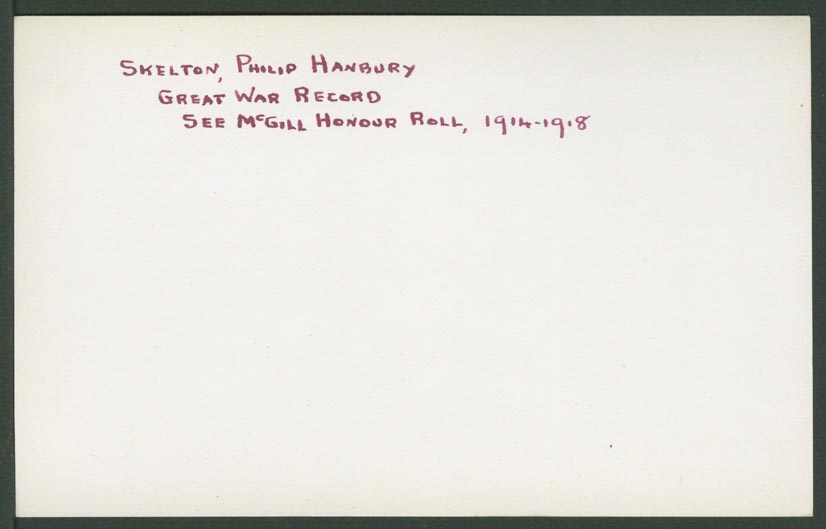 SKELTON, PHILIP HANBURY
GREAT WAR RECORD
SEE McGILL HONOUR ROLL, 1914-1918